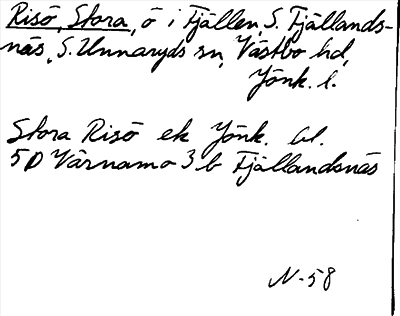 Risö, Stora, ö i Fjällen, S. Fjällands-
näs, S. Unnaryds sn, Västbo hd,
Jönk. l.
Stora Risö ek Jönk. bl.
5D Värnamo 3 b Fjällandsnäs
N-58